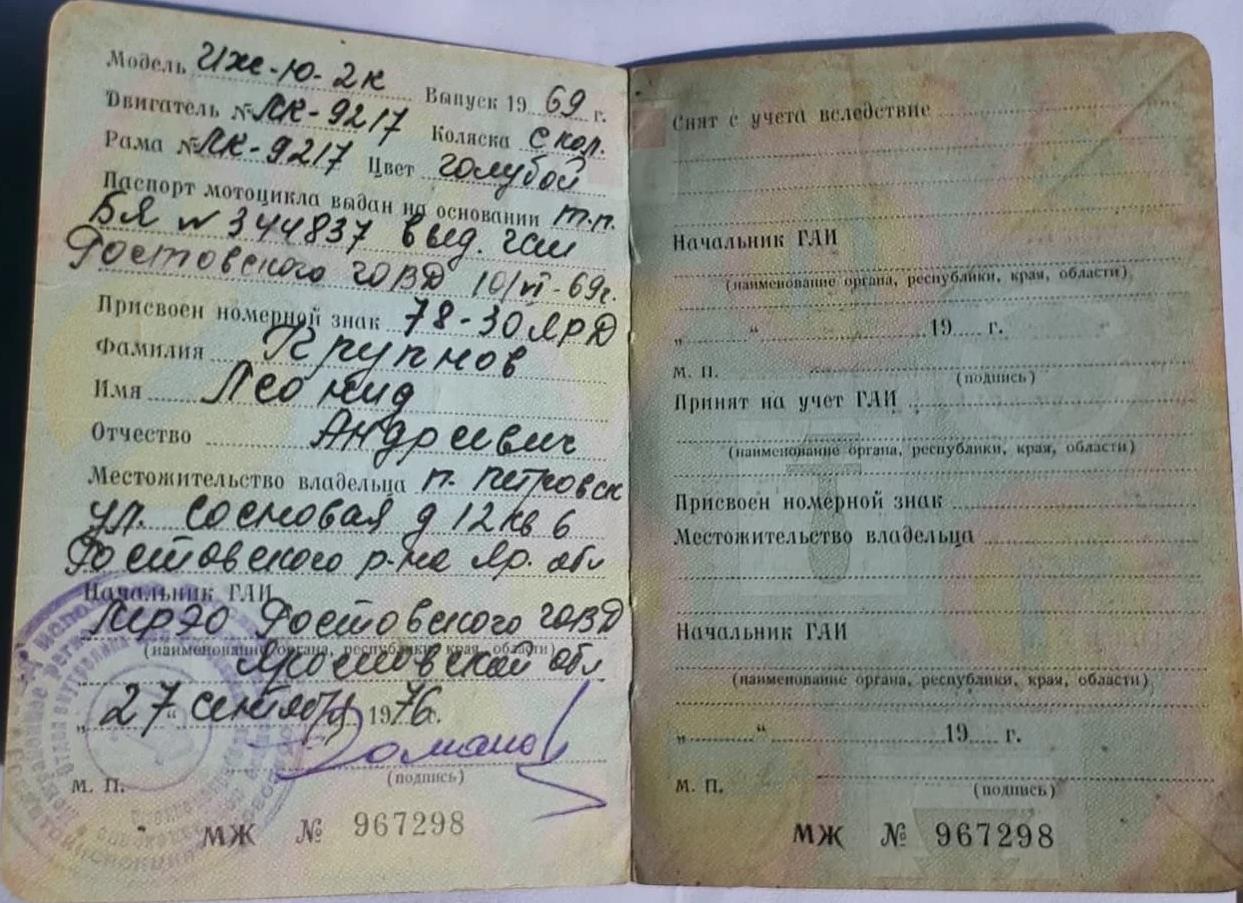 Модель Иж-Ю-2к Выпуск 1969 г.
Двигатель № ЛК-9217 Коляска с кол.
Рама № ЛК-9217 Цвет голубой
Паспорт мотоцикла выдан на основании т.п.
БЯ № 344837 выд. ГАИ
Ростовского ГОВД 10/VI-69г.
Присвоен номерной знак 78-30 ЯРД
Фамилия Крупнов
Имя Леонид
Отчество Андреевич
Местожительство владельца п. Петровск
ул. Сосновая д 12 кв 6
Ростовского р-на Яр. обл
Начальник ГАИ
МРЭО Ростовского ГОВД
(наименование органа, республики, края, области)
Ярославской обл
„27“ сентября 1976г.
(подпись)
М. П.
МЖ № 967298
Снят с учета вследствие
Начальник ГАИ
(наименование органа, республики, края, области)
„ “ 19 г.
М. П.
(подпись)
Принят на учет ГАИ
(наименование органа, республики, края, области)
Присвоен номерной знак
Местожительство владельца
Начальник ГАИ
(наименование органа, республики, края, области)
„ “ 19 г.
М. П.
(подпись)
МЖ № 967298